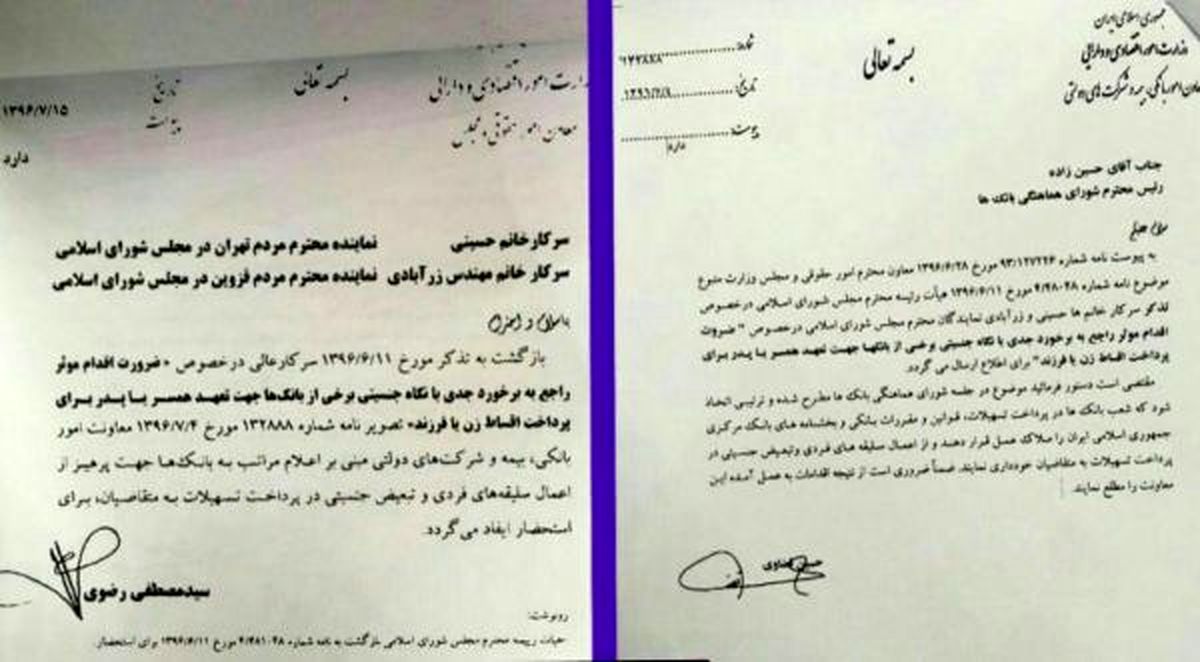 جمهوری اسلامی ایران
وزارت امور اقتصادی و دارایی
معاون امور بانکی، بیمه و شرکت های دولتی
بسمه تعالی
شماره: ۱۳۲۸۸۸
تاریخ:
پیوست:
دارد
جناب آقای حسین زاده
رئیس محترم شورای هماهنگی بانک ها
سلام علیکم
به پیوست نامه شماره ۹۳/۱۲۷۲۲۶ مورخ ۱۳۹۶/۶/۲۸ معاون محترم امور حقوقی و مجلس وزارت متبوع
موضوع نامه شماره ۴/۴۸۰۴۸ مورخ ۱۳۹۶/۶/۱۱ هیأت رئیسه محترم مجلس شورای اسلامی درخصوص
تذکر سرکار خانم ها حسینی و زرآبادی نمایندگان محترم مجلس شورای اسلامی درخصوص " ضرورت
اقدام موثر راجع به برخورد جدی با نگاه جنسیتی برخی از بانکها جهت تعهد همسر یا پدر برای
پرداخت اقساط زن یا فرزند" برای اطلاع ارسال می گردد.
مقتضی است دستور فرمائید موضوع در جلسه شورای هماهنگی بانک ها مطرح شده و ترتیبی اتخاذ
شود که شعب بانک ها در پرداخت تسهیلات، قوانین و مقررات بانکی و بخشنامه های بانک مرکزی
جمهوری اسلامی ایران را ملاک عمل قرار دهند و از اعمال سلیقه های فردی وتبعیض جنسیتی در
پرداخت تسهیلات به متقاضیان خودداری نمایند. ضمناً ضروری است از نتیجه اقدامات به عمل آمده این
معاونت را مطلع نمایند.
حسین قضاوی
وزارت امور اقتصادی و دارائی
معاون امور حقوقی و مجلس
بسمه تعالی
تاریخ ۱۳۹۶/۷/۱۵
پیوست
دارد
سرکار خانم حسینی نماینده محترم مردم تهران در مجلس شورای اسلامی
سرکار خانم مهندس زرآبادی نماینده محترم مردم قزوین در مجلس شورای اسلامی
باسلام و احترام
بازگشت به تذکر مورخ ۱۳۹۶/۶/۱۱ سرکارعالی درخصوص «ضرورت اقدام موثر
راجع به برخورد جدی با نگاه جنسیتی برخی از بانک‌ها جهت تعهد همسر یا پدر برای
پرداخت اقساط زن یا فرزند» تصویر نامه شماره ۱۳۲۸۸۸ مورخ ۱۳۹۶/۷/۴ معاونت امور
بانکی، بیمه و شرکت‌های دولتی مبنی بر اعلام مراتب به بانک‌ها جهت پرهیز از
اعمال سلیقه‌های فردی و تبعیض جنسیتی در پرداخت تسهیلات به متقاضیان، برای
استحضار ایفاد می‌گردد.
سیدمصطفی رضوی
رونوشت:
هیات رییسه محترم مجلس شورای اسلامی بازگشت به نامه شماره ۴/۴۸۱۰۴۸ مورخ ۱۳۹۶/۶/۱۱ برای استحضار.